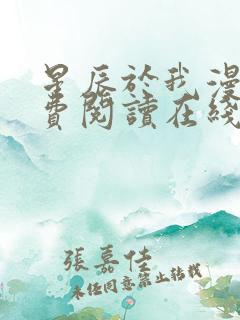 星辰於我漫
費閱讀在綫
張嘉佳
未经同意禁止转载